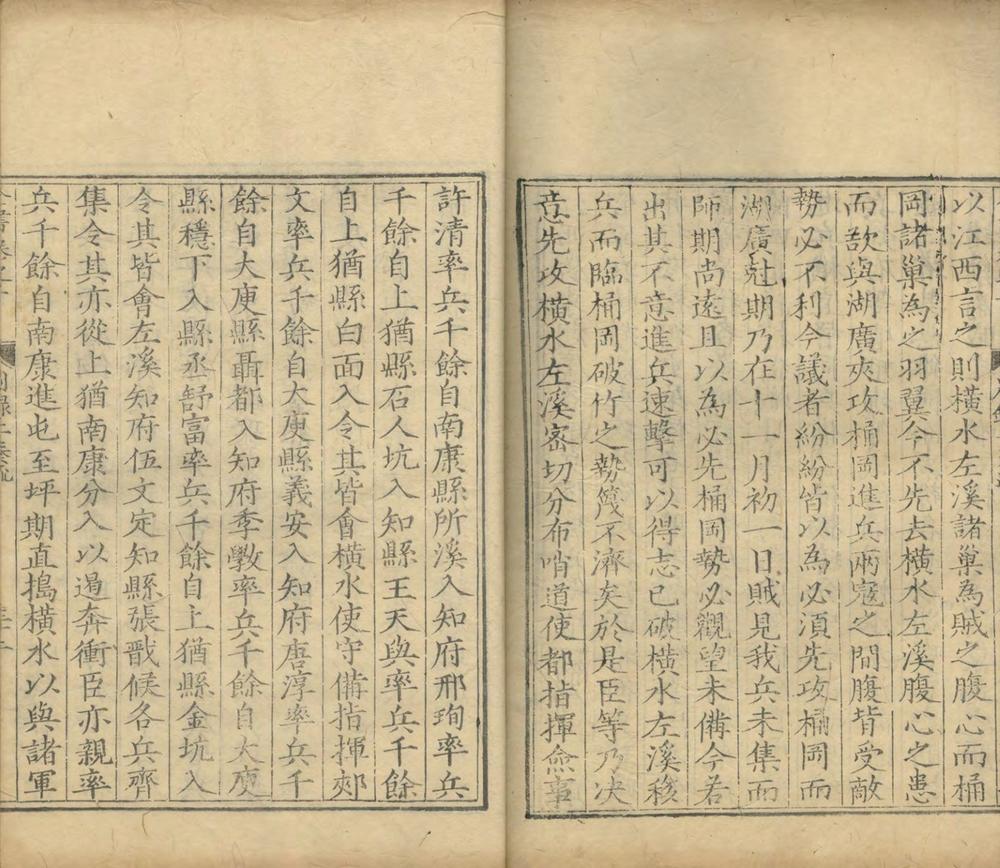 以江西言之則橫水左溪諸巢為賊之腹心而桶
岡諸巢為之羽翼今不先去橫水左溪腹心之患
而欲與湖廣夾攻桶岡進兵兩寇之間腹背受敵
勢必不利今議者紛紛皆以為必須先攻桶岡而
湖廣尅期乃在十一月初一日賊見我兵未集而
師期尚遠且以為必先桶岡勢必觀望未備今若
出其不意進兵速擊可以得志已破橫水左溪移
兵而臨桶岡破竹之勢篾不濟矣於是臣等乃决
意先攻橫水左溪密切分布哨道使都指揮僉事
許清率兵千餘自南康縣所溪入知府邢珣率兵
千餘自上猶縣石人坑入知縣王天與率兵千餘
自上猶縣白面入令其皆會橫水使守備指揮郟
文率兵千餘自大庾縣義安入知府唐淳率兵千
餘自大庾縣聶都入知府季斆率兵千餘自大庾
縣穩下入縣丞舒富率兵千餘自上猶縣金坑入
令其皆會左溪知府伍文定知縣張戩候各兵齊
集令其亦從上猶南康分入以遏奔衝臣亦親率
兵千餘自南康進屯至坪期直搗橫水以與諸軍